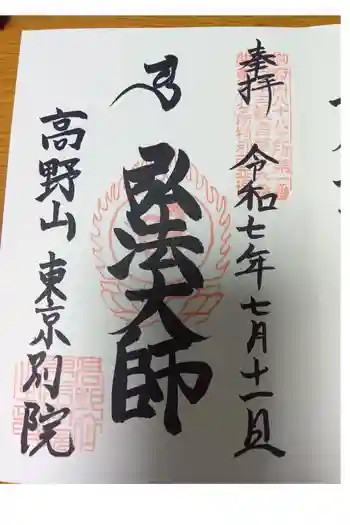 奉拝
令和七年七月十一日
弘法大師
高野山東京別院